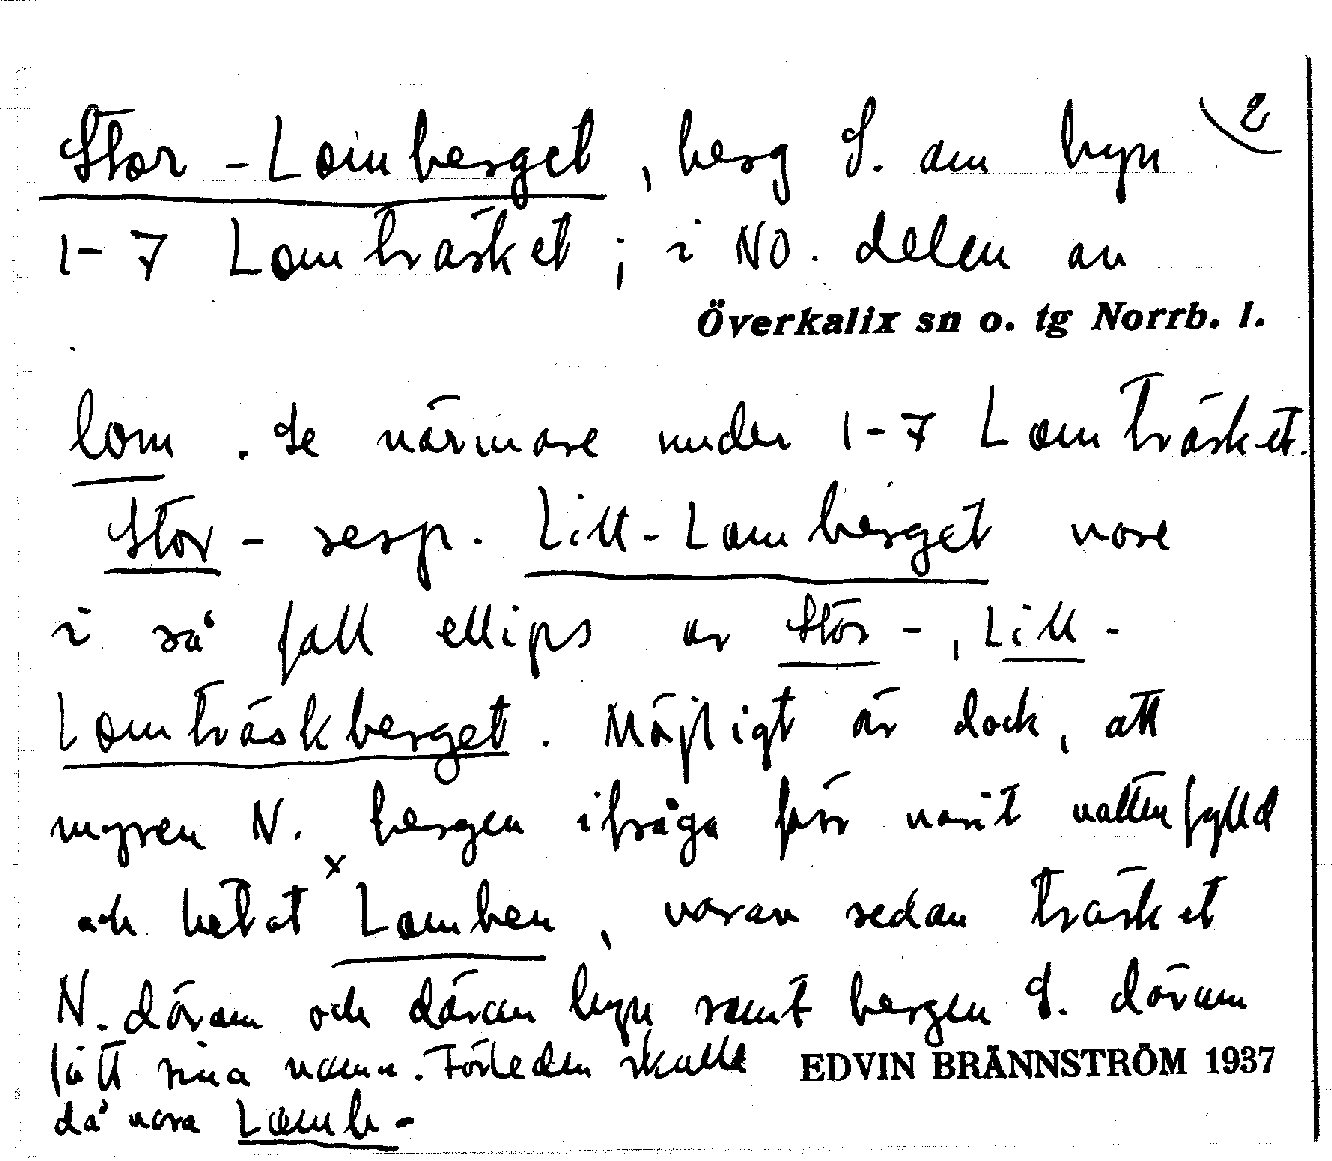 Stor-Lomberget, berg S. om byn 2
1-7 Lomträsket; i NO. delen av
Överkalix sn o. tg Norrb. l.
lom. Se närmare under 1-7 Lomträsket.
Stor- resp. Lill-Lomberget vore
i så fall ellips av Stor-, Lill-
Lomträskberget. Möjligt är dock, att
myren N. bergen ifråga förr varit vattenfylld
och hetat ˣLomben, varav sedan träsket
N. därom och därav byn samt bergen S. därom
fått sina namn. Förleden skulle
EDVIN BRÄNNSTRÖM 1937
då vara Lomb-